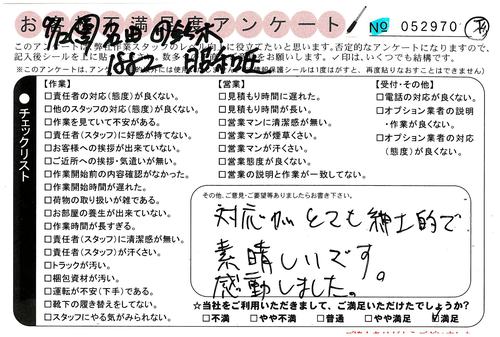 お客様不満足度アンケート
No 052970
このアンケートは弊社作業スタッフのレベル向上に役立てたいと思います。否定的なアンケートになりますので、
記入後シールを上に貼っ
をお願いします。✓印は、いくつでも結構です。
チェックリスト
【作業】
□責任者の対応(態度)が良くない。
□他のスタッフの対応(態度)が良くない。
□作業を見ていて不安がある。
□責任者(スタッフ)に好感が持てない。
□お客様への挨拶が出来ていない。
□ご近所への挨拶・気遣いが無い。
□作業開始前の内容確認がなかった。
□作業開始時間が遅れた。
□荷物の取り扱いが雑である。
□お部屋の養生が出来ていない。
□作業時間が長すぎる。
□責任者(スタッフ)に清潔感が無い。
□責任者(スタッフ)が汗くさい。
□トラックが汚い。
□梱包資材が汚い。
□運転が不安(下手)である。
□靴下の履き替えをしてない。
□スタッフにやる気がみられない。
【営業】
□見積もり時間に遅れた。
□見積もり時間が長い。
□営業マンに清潔感が無い。
□営業マンが煙草くさい。
□営業マンが汗くさい。
□営業態度が良くない。
□営業の説明と作業が一致してない。
【受付・その他】
□電話の対応が良くない。
□オプション業者の説明
・作業が良くない。
□オプション業者の対応
(態度)が良くない。
その他、ご意見・ご要望等ありましたらお書き下さい。
対応がとても紳士的で
素晴しいです。
感動しました。
☆当社をご利用いただきまして、ご満足いただけたでしょうか?
□不満 □やや不満 □普通 □やや満足 ☑満足